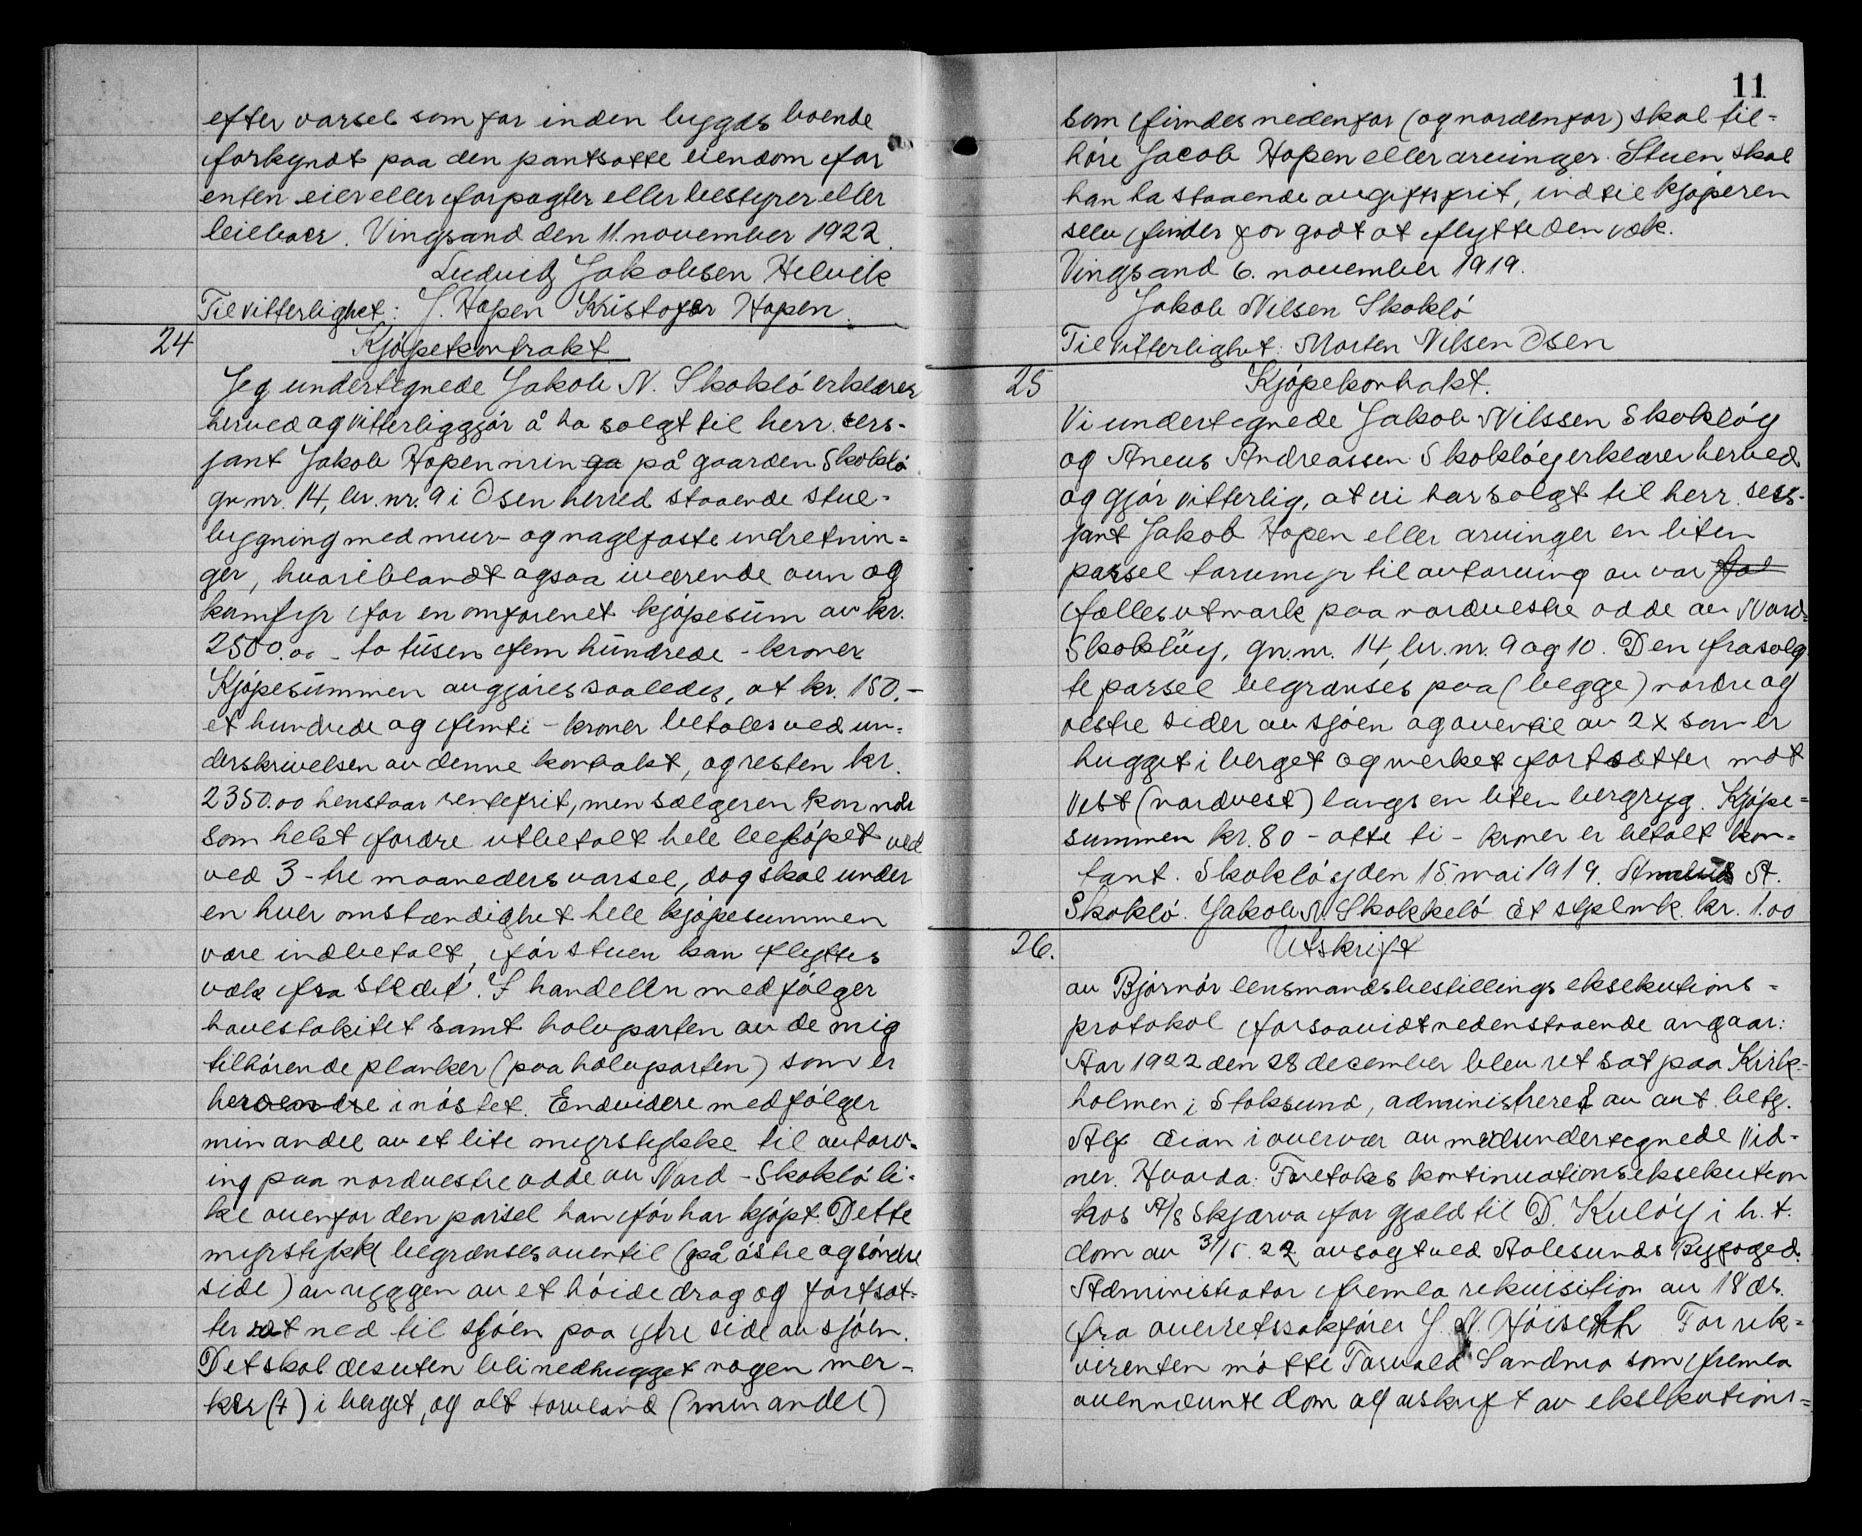 efter varsel som for inden bygds boende
forkyndt paa den pantsatte eiendom for
enten eier eller forpagter eller bestyrer eller
leilboer. Vingsand den 11. november 1922.
Ludvik Jakobsen Helvik
Til vitterlighet: J. Hopen Kristofer Hopen.
24 Kjøpekontrakt
Jeg undertegnede Jakob N. Skokló erklærer
herved og vitterliggjør å ha solgt til herr sers-
jant Jakob Hopen min ga på gaarden Skokló
gr. nr. 14, br. nr. 9 i Osen herred staaende stue-
bygning med mur- og naglfaste indretnin=
ger, hvoriblandt ogsaa iværende ovn og
komfyr for en omforenet kjøpesum av kr.
2500.00 - to tusen fem hundrede - kroner
Kjøpesummen avgjøres saaledes, at kr. 150,-
et hundrede og femti - kroner betales ved un-
derskrivelsen av denne kontrakt, og resten kr.
2350.00 henstaar rentefrit, men sælgeren kan når
som helst fordre utbetalt hele beløpet ved
ved 3 - tre maaneders varsel, dog skal under
en hver omstændighet hele kjøpesummen
være indbetalt, før stuen kan flyttes
væk fra stedet. I handelen medfølger
havestakitet samt halvparten av de mig
tilhørende planker (paa halvparten) som er
i nóstet. Endvidere medfølger
min andel av et lite myrstykke til avtorv-
ing paa nordvestre odde av Nord-Skokló li-
ke ovenfor den parsel han før har kjøpt. Dette
myrstykke begrænses oventil (på østre og søndre
side) av ryggen av et høidedrag og fortsæt-
ter ret ned til sjøen paa ytre side av sjøen.
Det skal desuten bli nedhugget nogen mer-
ker (+) i berget, og alt torvland (min andel)
11
som findes nedenfor (og nordenfor) skal til-
høre Jacob Hopen eller arvinger. Stuen skal
han ha staaende avgiftsfrit, indtil kjøperen
selv finder for godt at flytte den væk.
Vingsand 6. november 1919.
Jakob Nilsen Skokló
Til vitterlighet: Morten Nilsen Osen
25 Kjøpekontrakt.
Vi undertegnede Jakob Nilssen Skoklóy
og Aneus Andreassen Skoklóy erklærer herved
og gjør vitterlig, at vi har solgt til herr sers-
jant Jakob Hopen eller arvinger en liten
parsel torvmyr til avtorving av vor fol
fælles utmark paa nordvestre odde av Nord-
Skoklöy, gr. nr. 14, br. nr. 9 og 10. Den frasolg
te parsel begrænses paa (begge) nordre og
vestre sider av sjøen og oventil av 2 x som er
hugget i berget og merket fortsætter mot
vest (nordvest) langs en liten bergryg. Kjøpe=
summen kr. 80 - otte ti - kroner er betalt kon-
tant. Skoklóy den 15 mai 1919. A.
Skokló. Jakob N Skokkeló Et stplmk. kr. 1.00
26. Utskrift
av Bjørnør lensmandsbestillings eksekutions-
protokol forsaavidt nedenstaaende angaar:
Aar 1922 den 28 december blev ret sat paa Kirk-
holmen i Stoksund, administreret av aut. betj.
Alf Eian i overvær av medundertegnede vid-
ner. Hvorda: Foretokes kontinuationseksekution
hos A/S Skjærva for gjæld til D. Kulóy i h. t.
dom av 31/5. 22 avsagt ved Aalesunds Byfoged.
Administrator fremla rekvisition av 18 ds.
fra overretssakfører J. N. Høiseth For rek-
virenten møtte Torvald Sandmo som fremla
ovennævnte dom og avskrift av eksekutions=